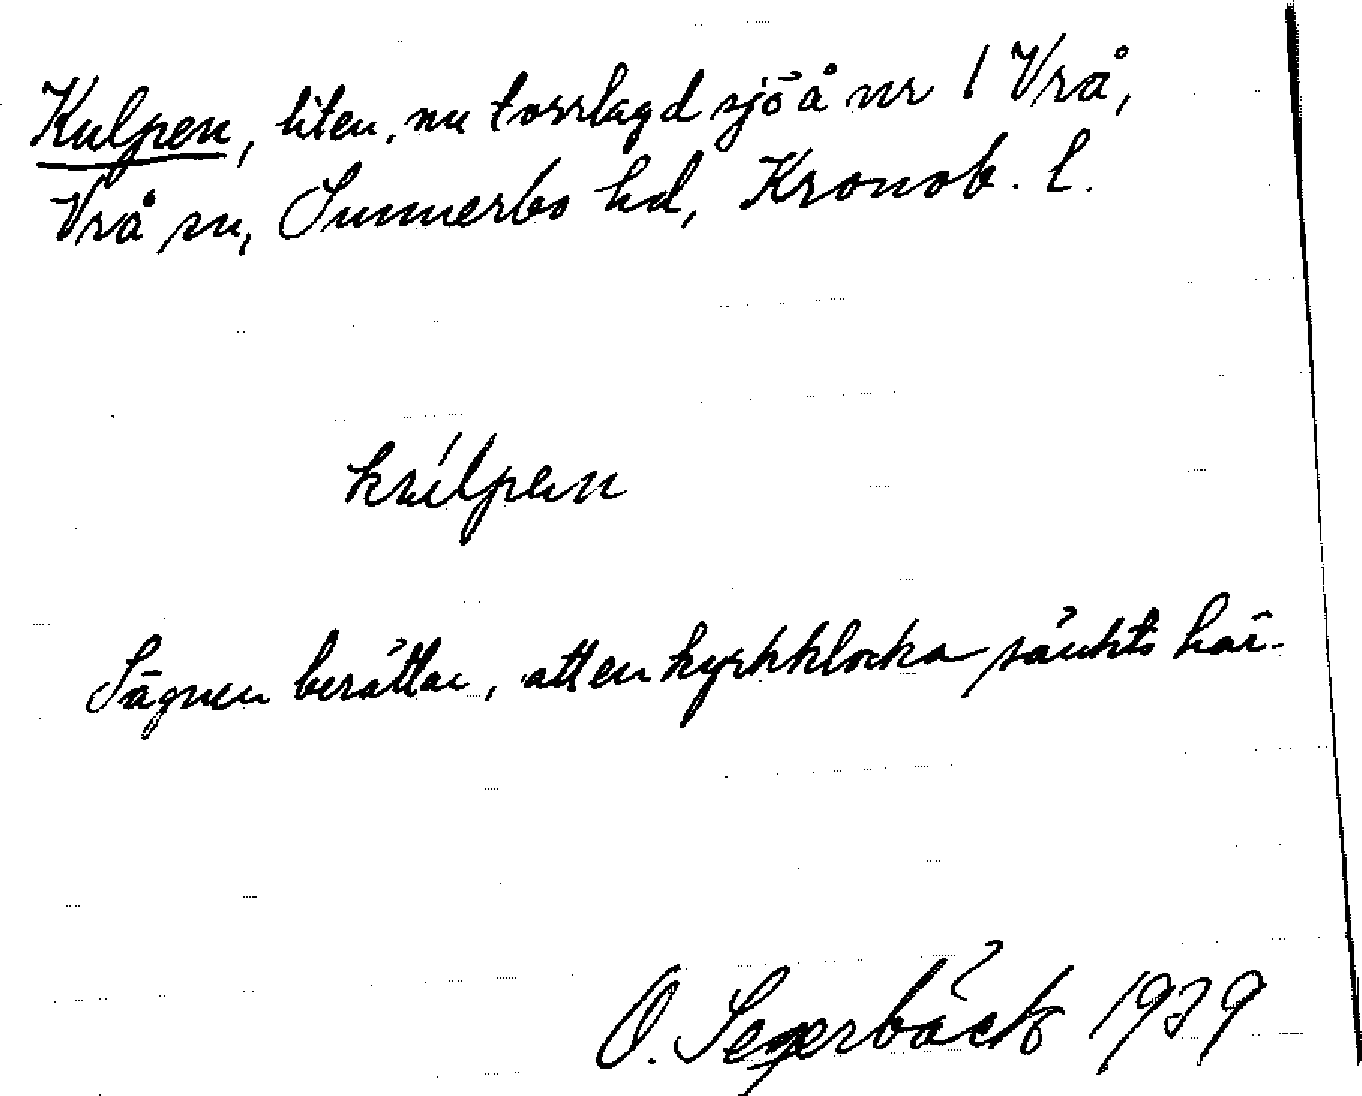 Kulpen, liten, nu torrlagd sjö å nr 1 Vrå,
Vrå sn, Sunnerbo hd, Kronob. l.
kúlpen
Sägnen berättar, att en kyrkklocka sänkts här.
O. Segerbäck 1939